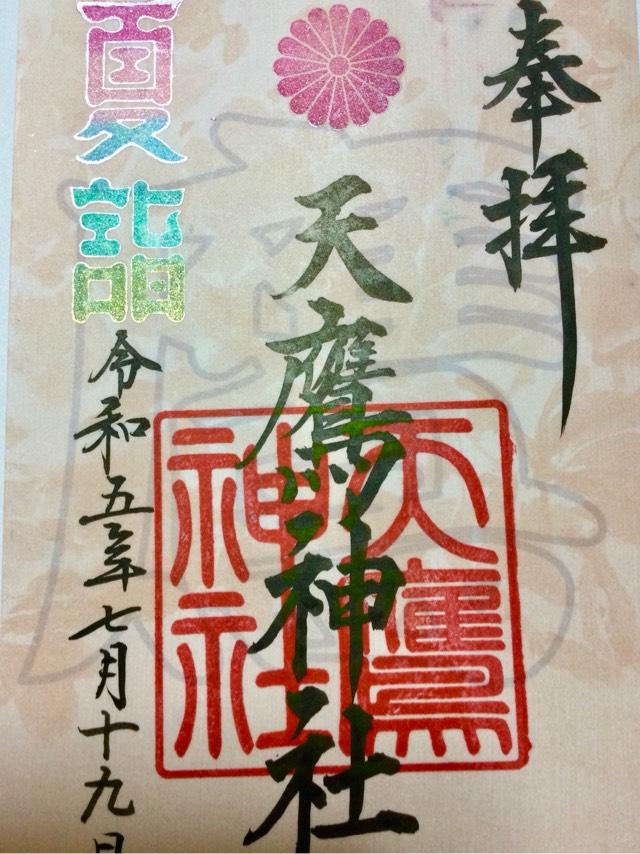 奉拝
天鷹神社
天鷹
神社
夏詣
令和五年七月十九日